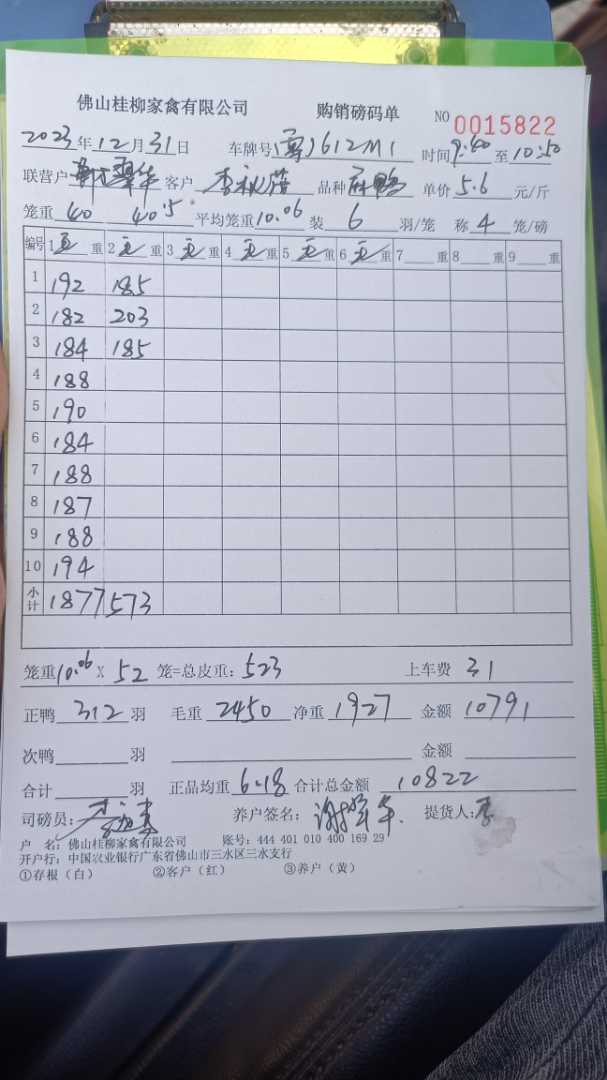 佛山桂柳家禽有限公司 购销磅码单 NO 0015822
2023年12月31日 车牌号(粤)612M1 时间9:40至10:50
联营户 客户 品种麻鸭 单价5.6元/斤
笼重40 40.5 平均笼重10.06 装6羽/笼 称4笼/磅
编号 1毛重 2毛重 3毛重 4毛重 5毛重 6毛重 7重 8重 9重
1 192 185
2 182 203
3 184 185
4 188
5 190
6 184
7 188
8 187
9 188
10 194
小计 1877 573
笼重10.06X52笼=总皮重:523 上车费31
正鸭312羽 毛重2450 净重1927 金额10791
次鸭羽 金额
合计羽 正品均重6.18 合计总金额10822
司磅员: 养户签名: 提货人:李
户 名:佛山桂柳家禽有限公司 账号:444 401 010 400 169 29
开户行:中国农业银行广东省佛山市三水区三水支行
①存根(白) ②客户(红) ③养户(黄)